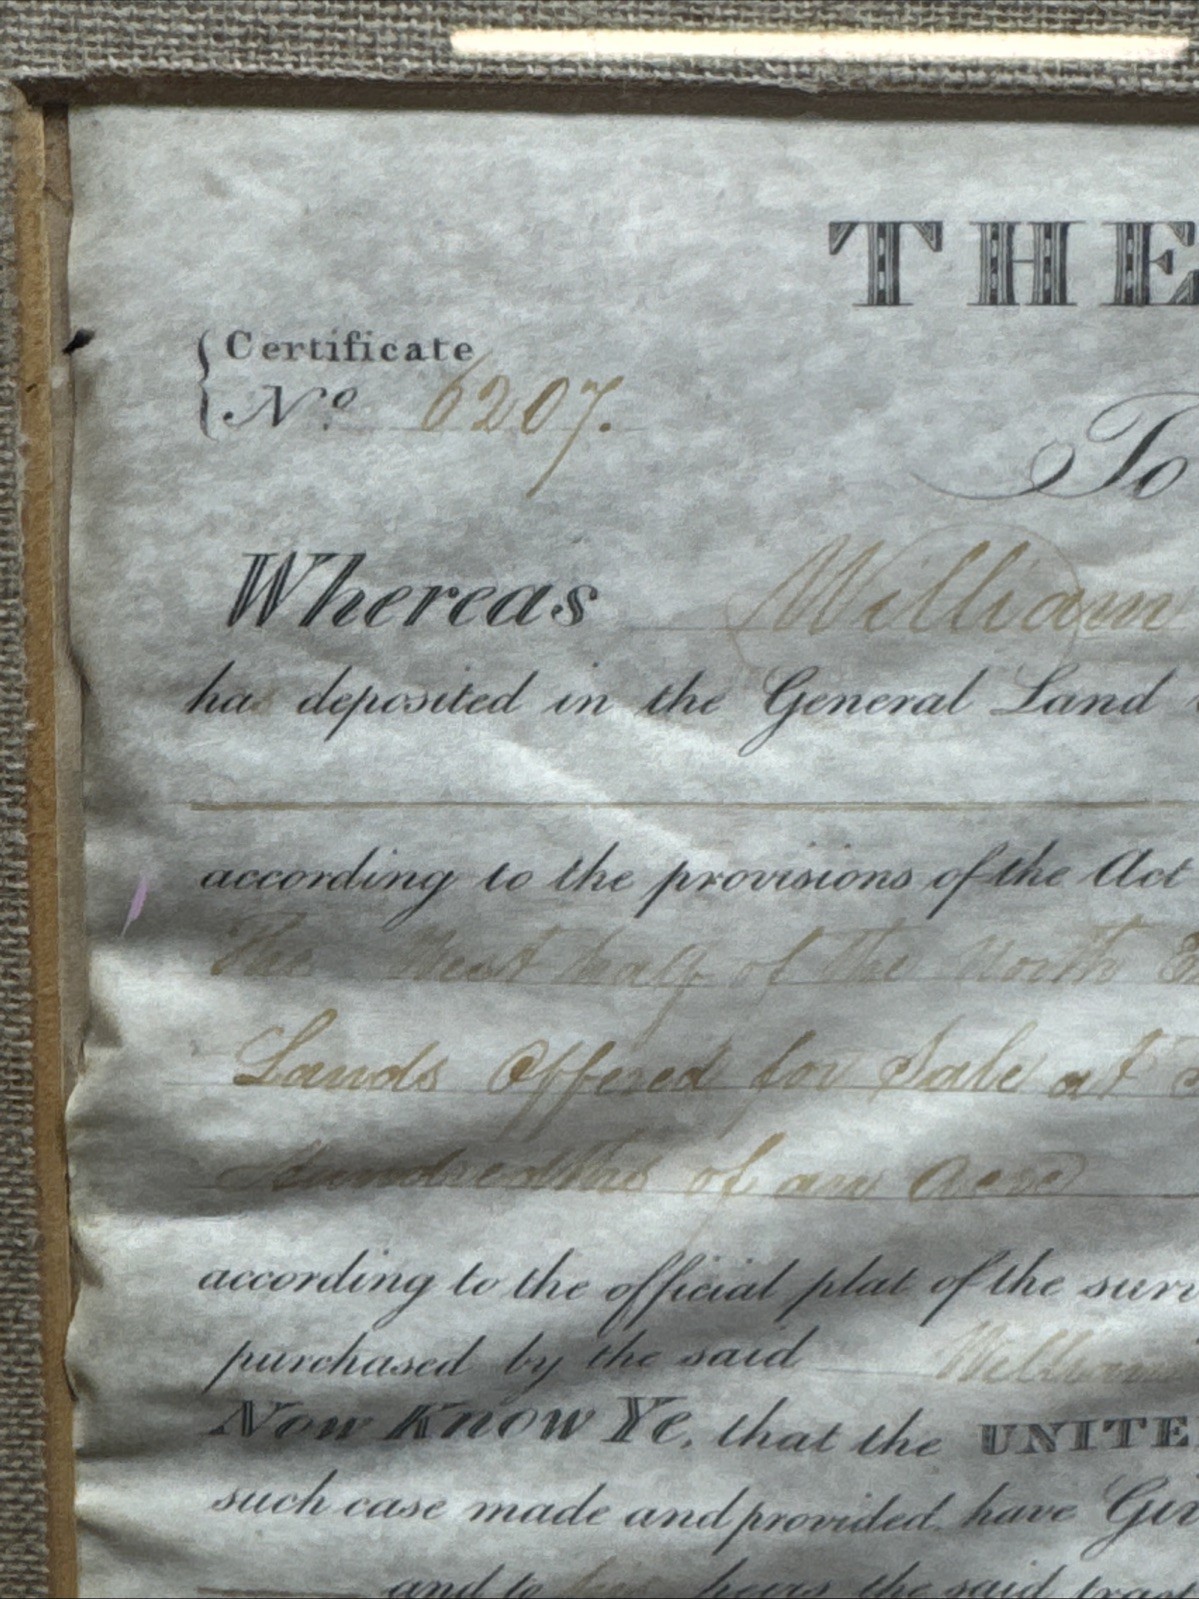 THE
Certificate
No. 6207.
To
Whereas William
has deposited in the General Land
according to the provisions of the Act
The West half of the North
Lands Offered for Sale at
Hundredths of an Acre
according to the official plat of the surv
purchased by the said William
Now Know Ye, that the UNITE
such case made and provided, have Giv
and to his heirs the said tract